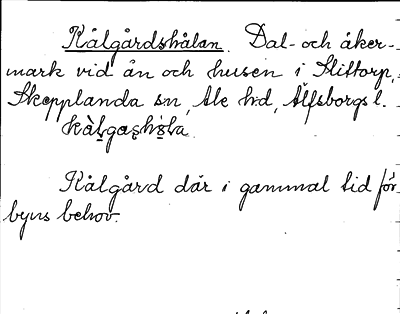 Kålgårdshålan. Dal- och åker-
mark vid ån och husen i Slittorp,
Skepplanda sn, Ale hd, Älfsborgs l.
kàlgashåla.
Kålgård där i gammal tid för
byns behov.